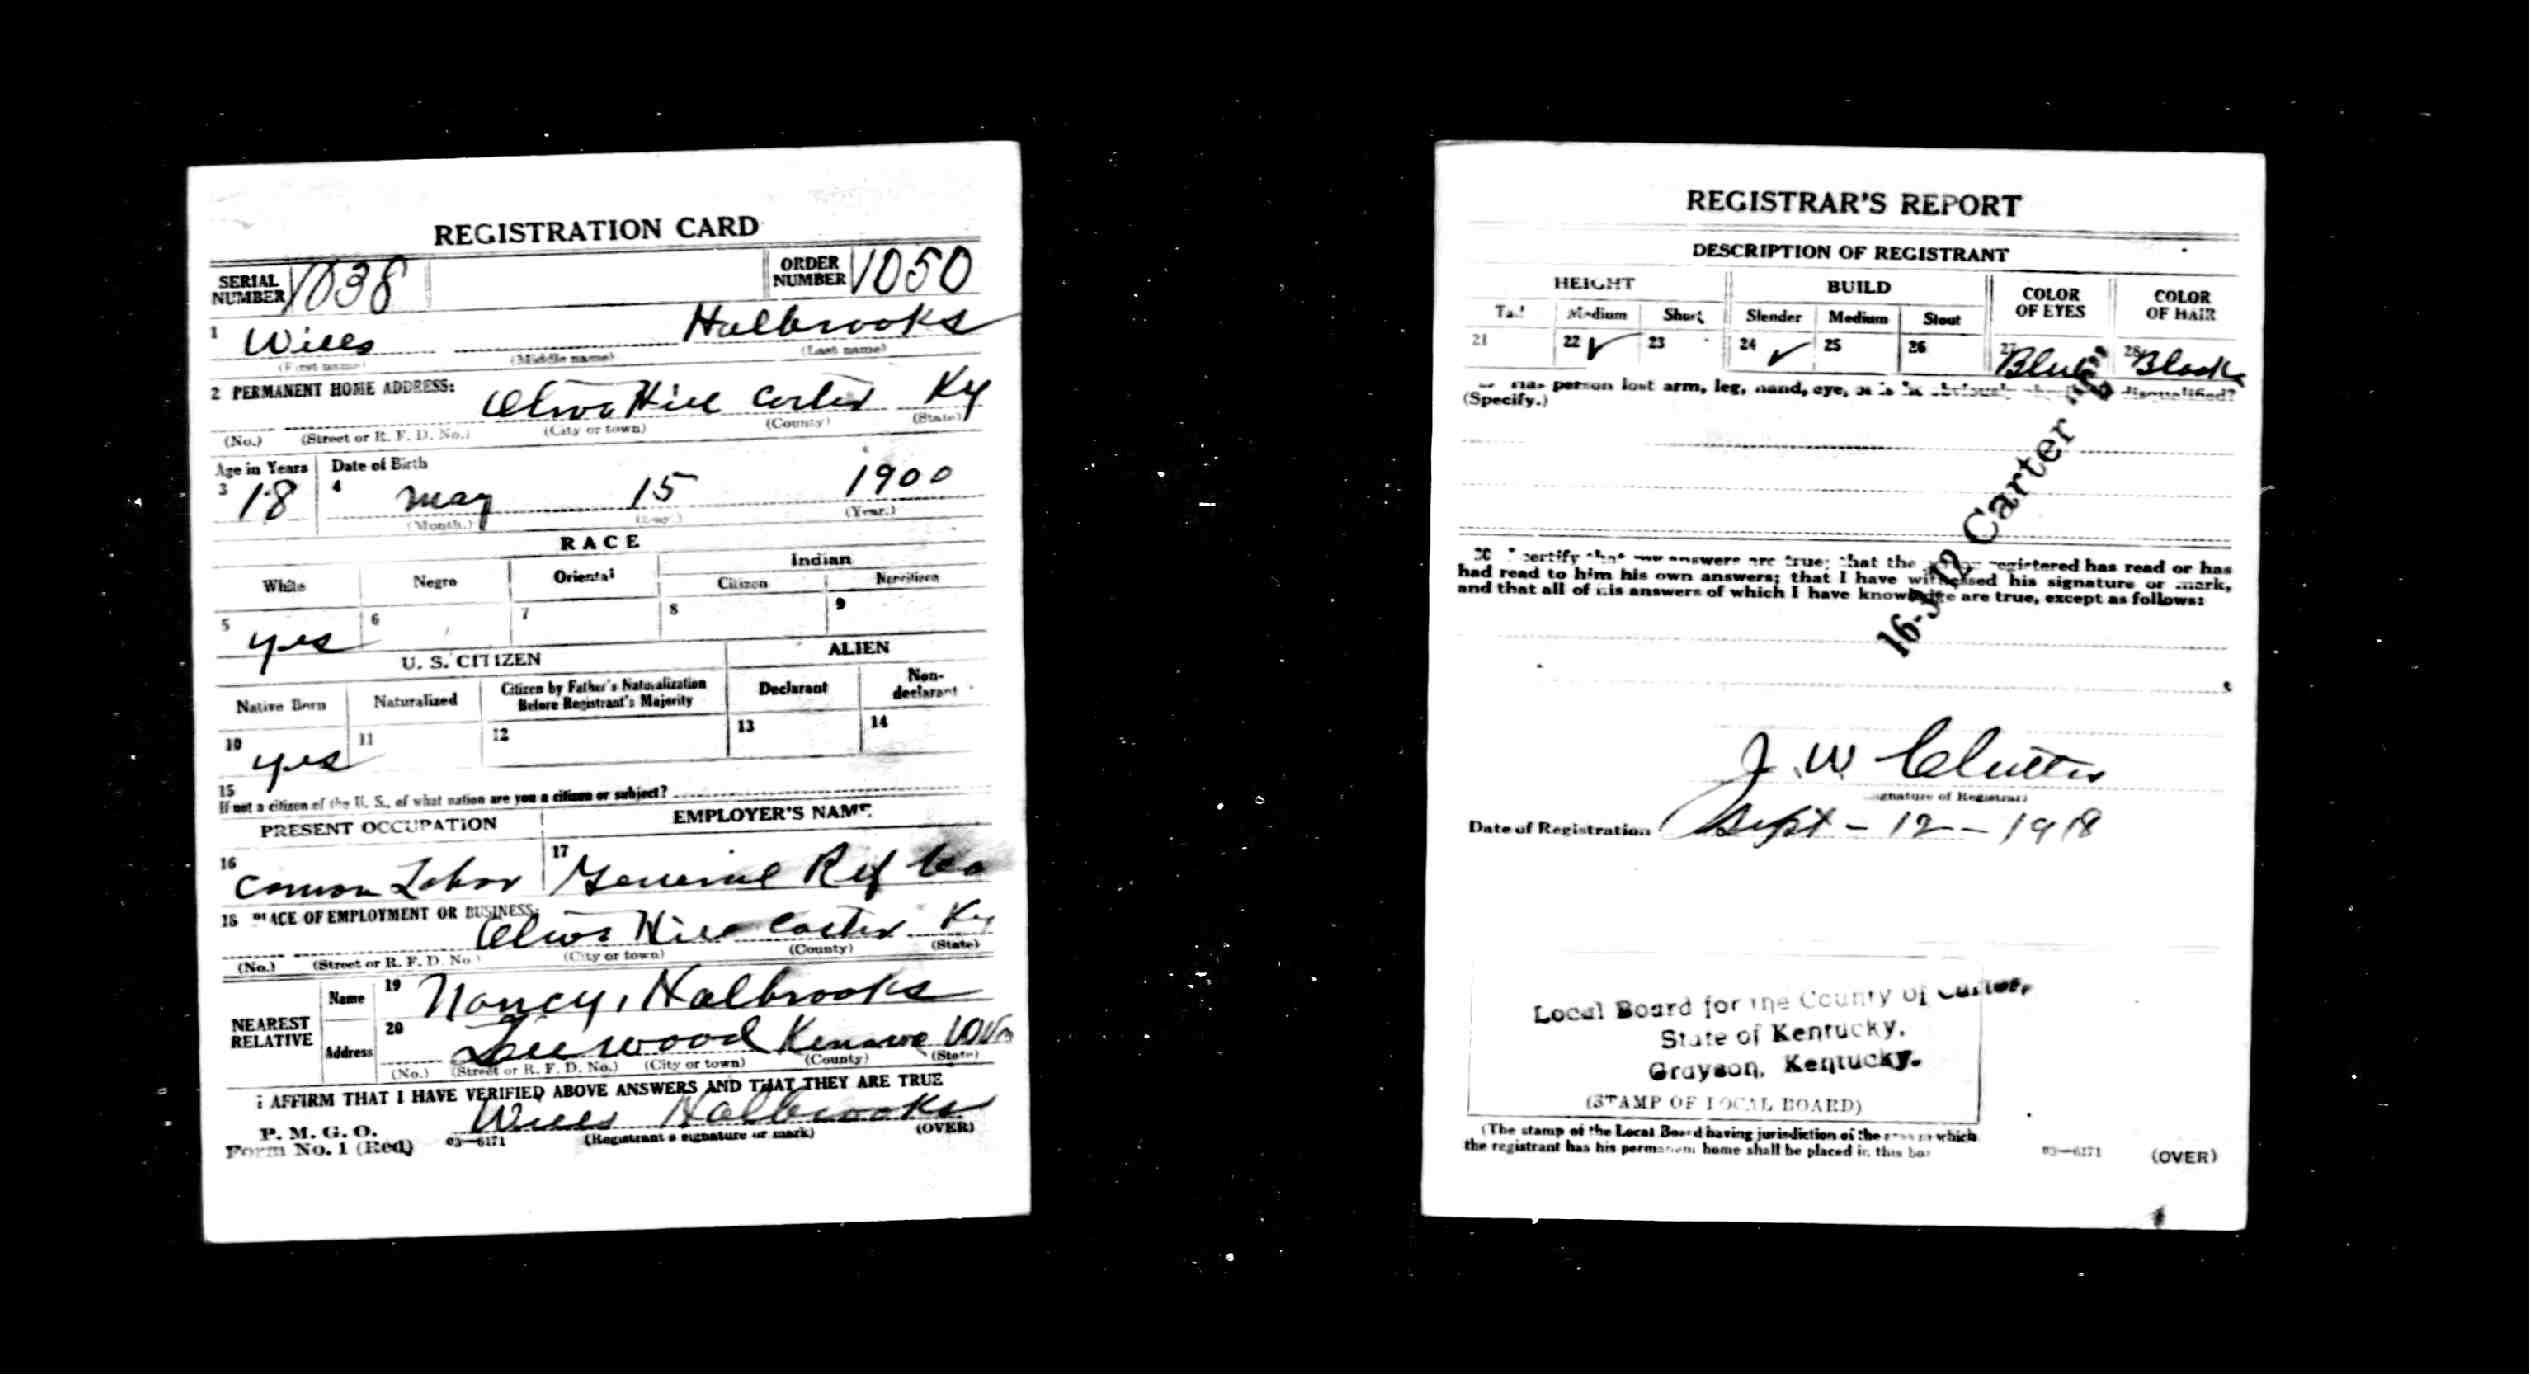 REGISTRATION CARD
SERIAL NUMBER 1038 ORDER NUMBER 1050
1 Wills Halbrooks
(First name) (Middle name) (Last name)
2 PERMANENT HOME ADDRESS:
Olive Hill Carter Ky
(No.) (Street or R. F. D. No.) (City or town) (County) (State)
Age in Years Date of Birth
3 18 4 May 15 1900
(Month.) (Day.) (Year.)
RACE
White Negro Oriental Indian
Citizen Noncitizen
5 yes 6 7 8 9
U. S. CITIZEN ALIEN
Native Born Naturalized Citizen by Father's Naturalization Before Registrant's Majority Declarant Non-declarant
10 yes 11 12 13 14
15
If not a citizen of the U. S., of what nation are you a citizen or subject?
PRESENT OCCUPATION EMPLOYER'S NAME
16 Comon Labor 17 General Ref Co
18 PLACE OF EMPLOYMENT OR BUSINESS:
Olive Hill Carter Ky
(No.) (Street or R. F. D. No.) (City or town) (County) (State)
NEAREST RELATIVE Name 19 Nancy, Halbrooks
Address 20 Kenawe WVa
(No.) (Street or R. F. D. No.) (City or town) (County) (State)
I AFFIRM THAT I HAVE VERIFIED ABOVE ANSWERS AND THAT THEY ARE TRUE
P. M. G. O. Wills Halbrooks
Form No. 1 (Red) 03—6171 (Registrant's signature or mark) (OVER)
REGISTRAR'S REPORT
DESCRIPTION OF REGISTRANT
HEIGHT BUILD COLOR OF EYES COLOR OF HAIR
Tall Medium Short Slender Medium Stout
21 22 ✓ 23 24 ✓ 25 26 27 Blue 28 Black
Has person lost arm, leg, hand, eye, disqualified?
(Specify.)
16-1-12 Carter
30 I certify that my answers are true; that the person registered has read or has
had read to him his own answers; that I have witnessed his signature or mark,
and that all of his answers of which I have knowledge are true, except as follows:
J. W. Clutter
Signature of Registrar
Date of Registration Sept - 12 - 1918
Local Board for the County of Carter,
State of Kentucky,
Grayson, Kentucky.
(STAMP OF LOCAL BOARD)
(The stamp of the Local Board having jurisdiction of the area in which
the registrant has his permanent home shall be placed in this box
03—6171 (OVER)